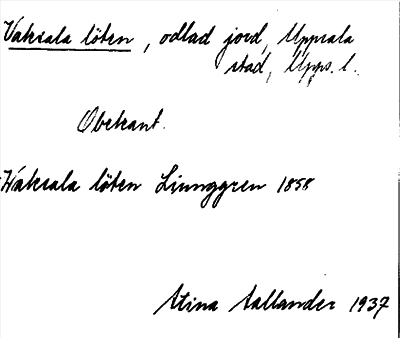 Vaksala löten, odlad jord, Uppsala
stad, Upps. l.
Obekant.
Waksala löten Ljunggren 1858
Stina Sallander 1937